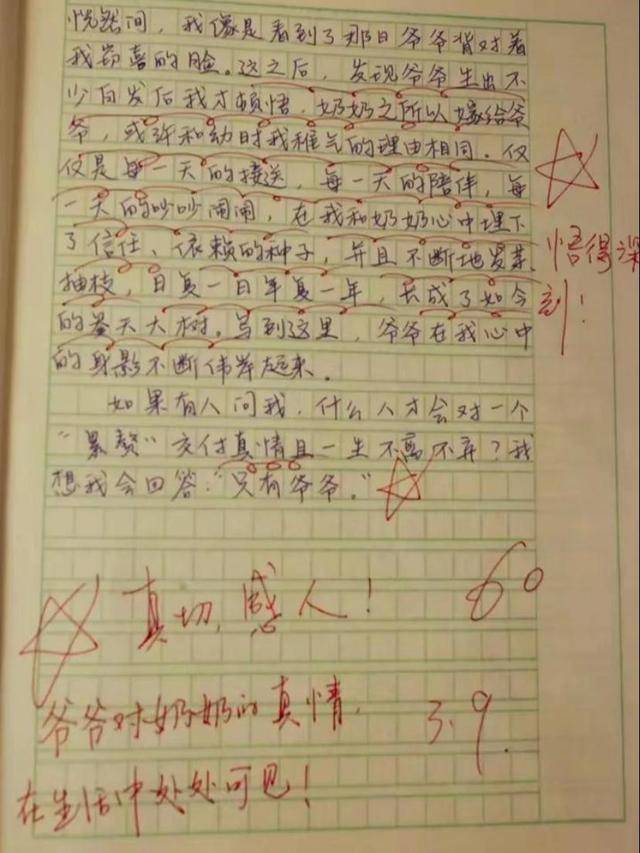 恍然间，我像是看到了那日爷爷背对着
我窃喜的脸。这之后，发现爷爷生出不
少白发后我才顿悟，奶奶之所以嫁给爷
爷，或许和幼时我稚气的理由相同。仅
仅是每一天的接送，每一天的陪伴，每
一天的吵吵闹闹，在我和奶奶心中埋下
了信任、依赖的种子，并且不断地发芽、
抽枝，日复一日年复一年，长成了如今
的参天大树。写到这里，爷爷在我心中
的身影不断伟岸起来。
如果有人问我，什么人才会对一个
“累赘”交付真情且一生不离不弃？我
想我会回答：“只有爷爷。”
悟得深
刻！
真切，感人！
60
爷爷对奶奶的真情，
3.9.
在生活中处处可见！